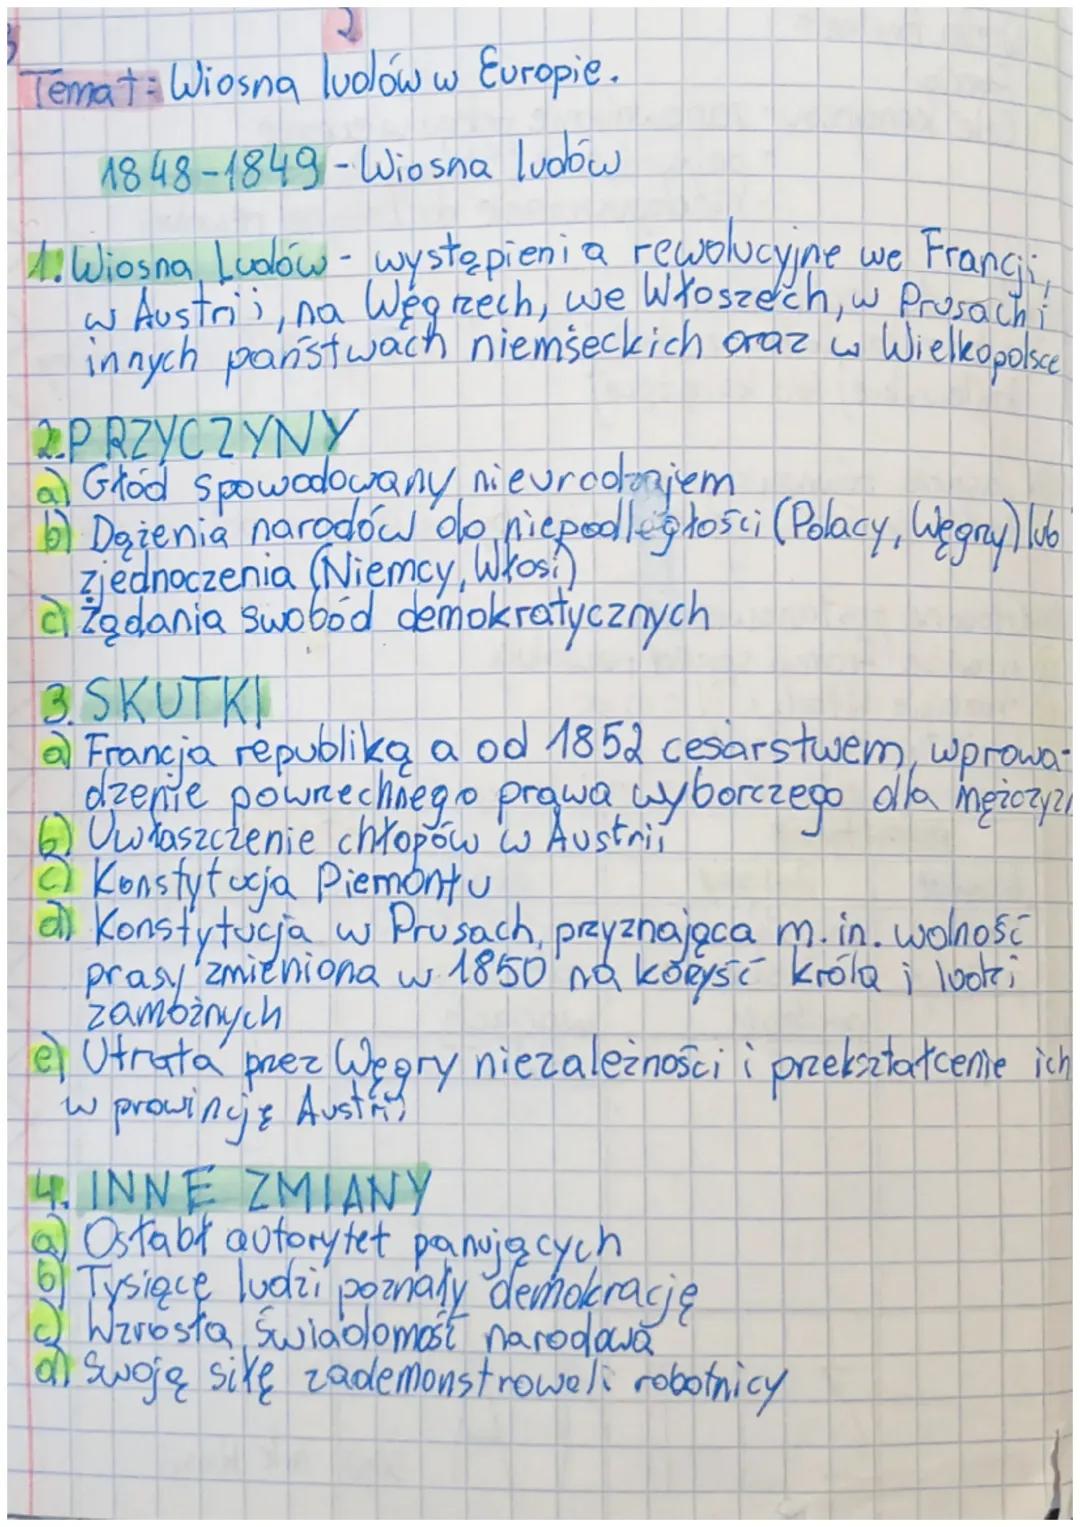 2
Temat: Wiosna ludów w Europie.
1848-1849 - Wiosna ludów
1. Wiosna Ludów - wystąpienia rewolucyjne we Francji,
w Austrii, na Węgrzech, we Włoszech, w Prusach i
innych państwach niemieckich oraz w Wielkopolsce
2. PRZYCZYNY
a) Głód spowodowany nieurodzajem
b) Dążenia narodów do niepodległości (Polacy, Węgry) lub
zjednoczenia (Niemcy, Włosi)
c) Żądania swobód demokratycznych
3. SKUTKI
a) Francja republiką a od 1852 cesarstwem, wprowa-
dzenie powszechnego prawa wyborczego dla mężczyzn
b) Uwłaszczenie chłopów w Austrii
c) Konstytucja Piemontu
d) Konstytucja w Prusach, przyznająca m.in. wolność
prasy zmieniona w 1850 na korzyść króla i ludzi
zamożnych
e) Utrata przez Węgry niezależności i przekształcenie ich
w prowincję Austrii
4. INNE ZMIANY
a) Osłabł autorytet panujących
b) Tysiące ludzi poznały demokrację
c) Wzrosła świadomość narodowa
d) Swoją siłę zademonstrowali robotnicy